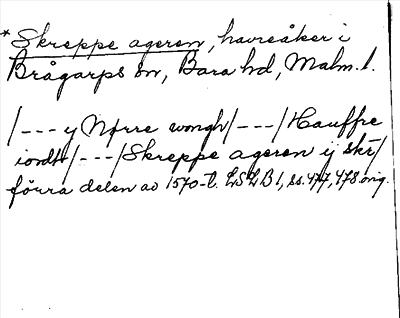 * Skreppe ageren, havreåker i
Brågarps sn, Bara hd, Malm. l.
/---y Nørre wongh/---/Hauffre
iordtt/---/Skreppe ageren ij skr/
förra delen av 1570-t. LSLB 1, ss. 477, 478 orig.